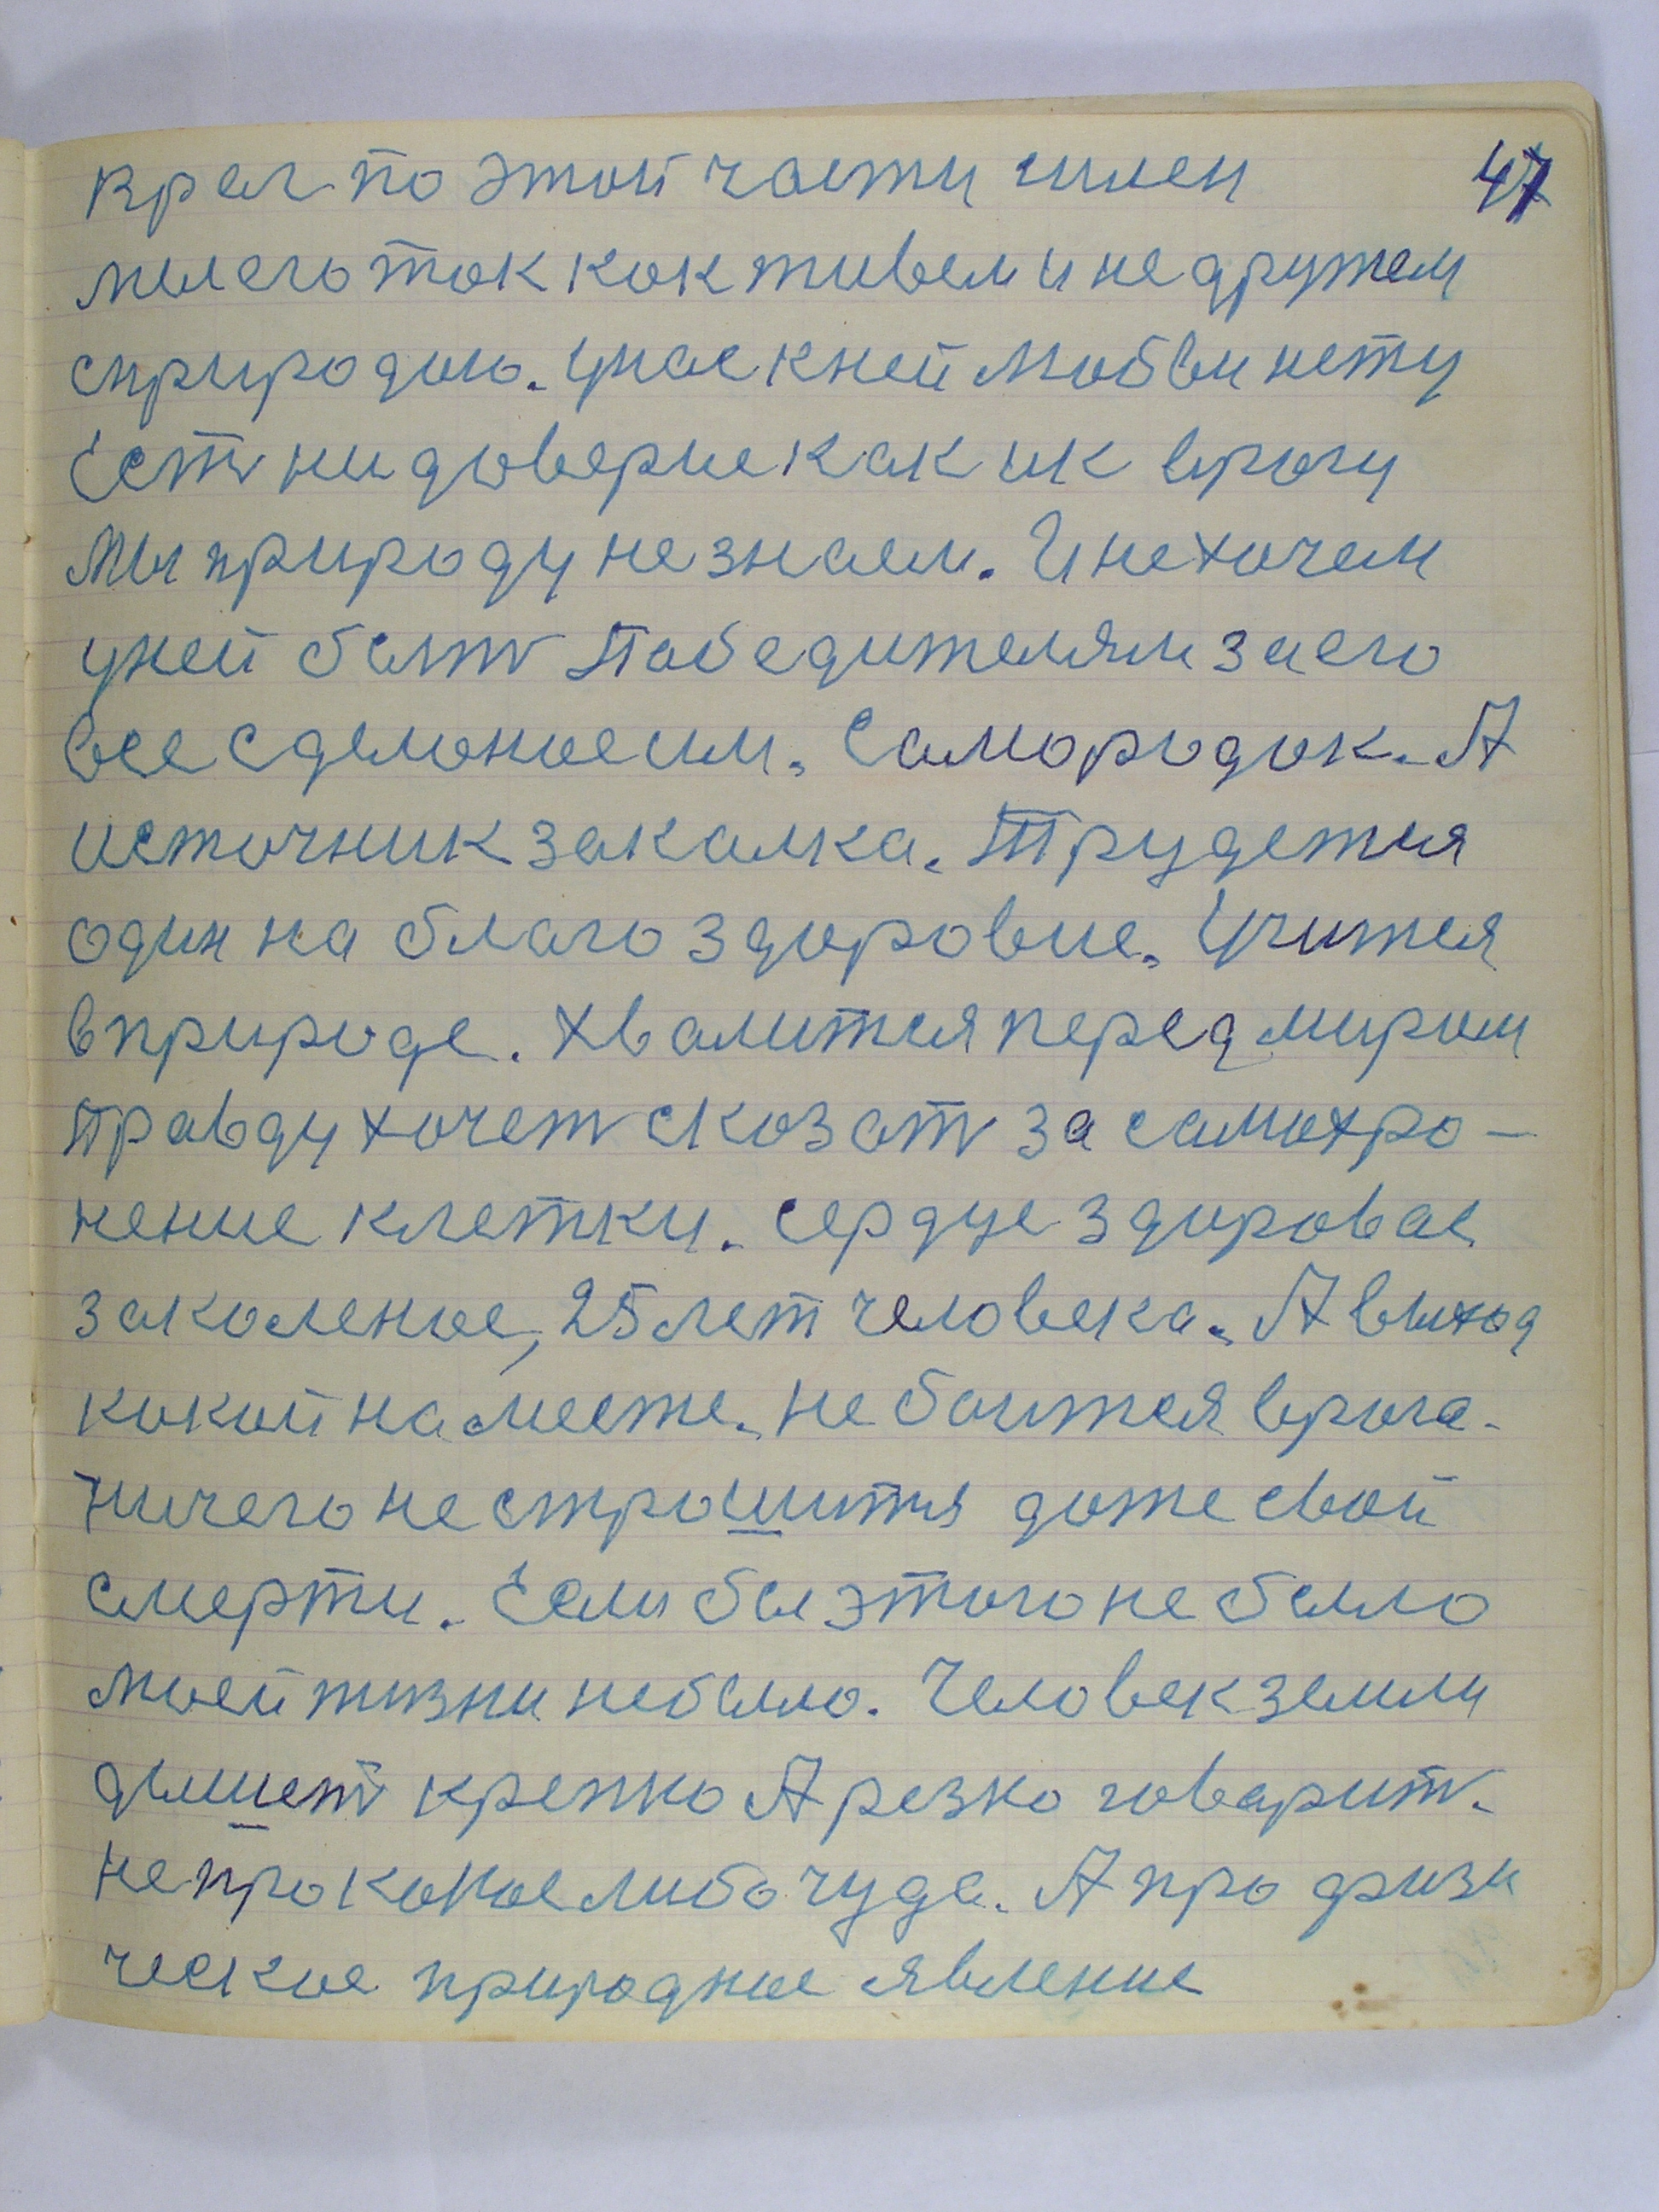 47
враг по этой части силен
мы его так как живем и не дружем
с природою. У нас к ней любви нету
Есть ни доверие как и к врагу
Мы природу не знаем. И не хочем
у ней быть Победителям за его
все сделоное им. Самородок. А
источник закалка. Трудется
один на благо здоровие. Учится
в природе. Хвалится перед миром
Правду хочеть сказать за самохро-
нение клетки. Сердце здоровае
закаленое, 25 лет человека. А выход
какой на месте. не боится врага.
Ничего не строшится даже свой
смерти. Если бы этого не было
моей жизни не было. Человек земли
дышеть крепко А резко говарить.
не про какое либо чуда. А про физи
ческое природное явление